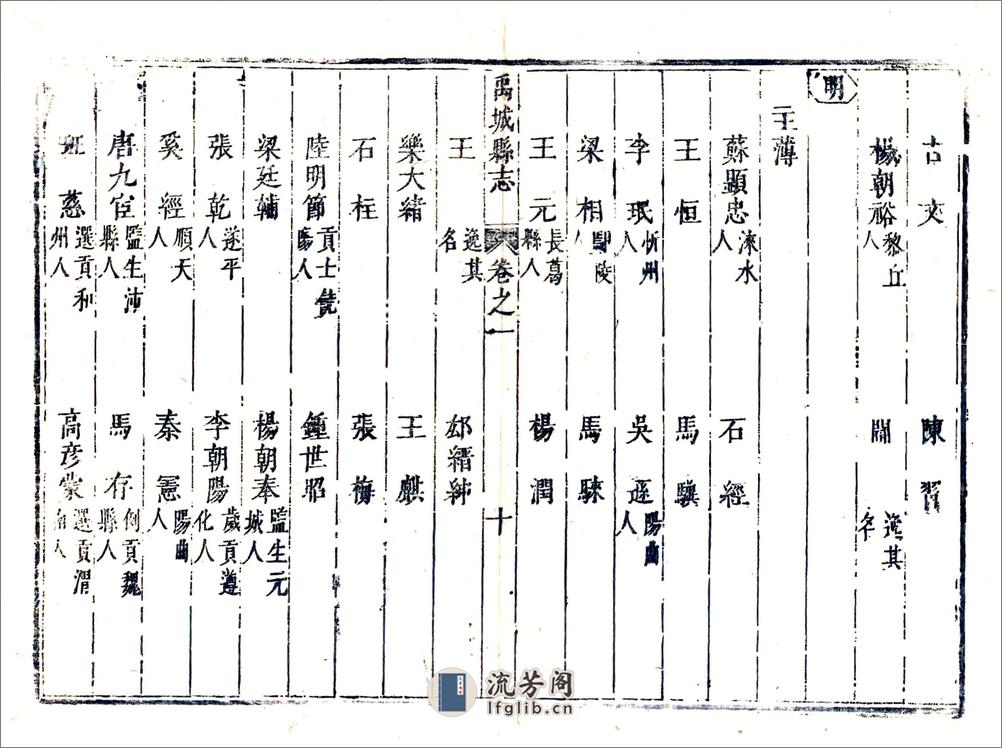 古文　陳習
楊朝裕黎丘人　閻　逸其名
明
主薄
蘇顯忠淶水人　石經
王恒　馬驥
李珉忻州人　吳遜陽曲人
梁相鄢陵人　馬騋
王元長葛縣人　楊潤
禹城縣志　卷之一　十
王　逸其名　邲縉紳
樂大緒　王麒
石柱　張梅
陸明節貢士饒陽人　鍾世昭
梁廷輔　楊朝奉監生元城人
張乾遂平人　李朝陽歲貢遵化人
奚經順天人　秦憲陽曲人
唐九宦監生沛縣人　馬存例貢魏縣人
班慈選貢和州人　高彥蒙選貢渭南人
流芳阁
lfglib.cn